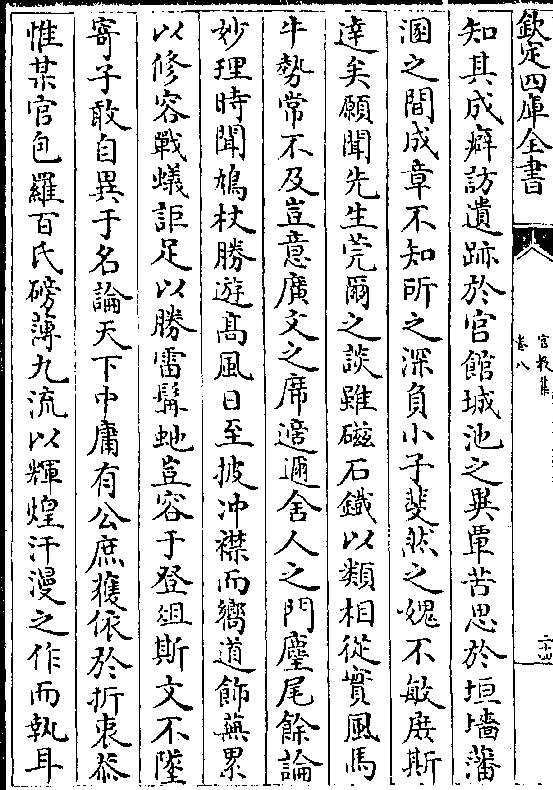 欽定四庫全書
宮教集
卷八
二十四
知其成癖訪遺跡於官館城池之異覃苦思於垣墻藩
溷之間成章不知所之深負小子斐然之媿不敏展斯
達矣願聞先生莞爾之談雖磁石鐵以類相從實風馬
牛勢常不及豈意廣文之席適邇舍人之門麈尾餘論
妙理時聞鳩杖勝遊高風日至披冲襟而嚮道飾蕪累
以修容戰蟻詎足以勝雷髯虵豈容于登俎斯文不墜
寄子敢自異于名論天下中庸有公庶獲依於折衷恭
惟某官包羅百氏磅薄九流以輝煌汗漫之作而執耳